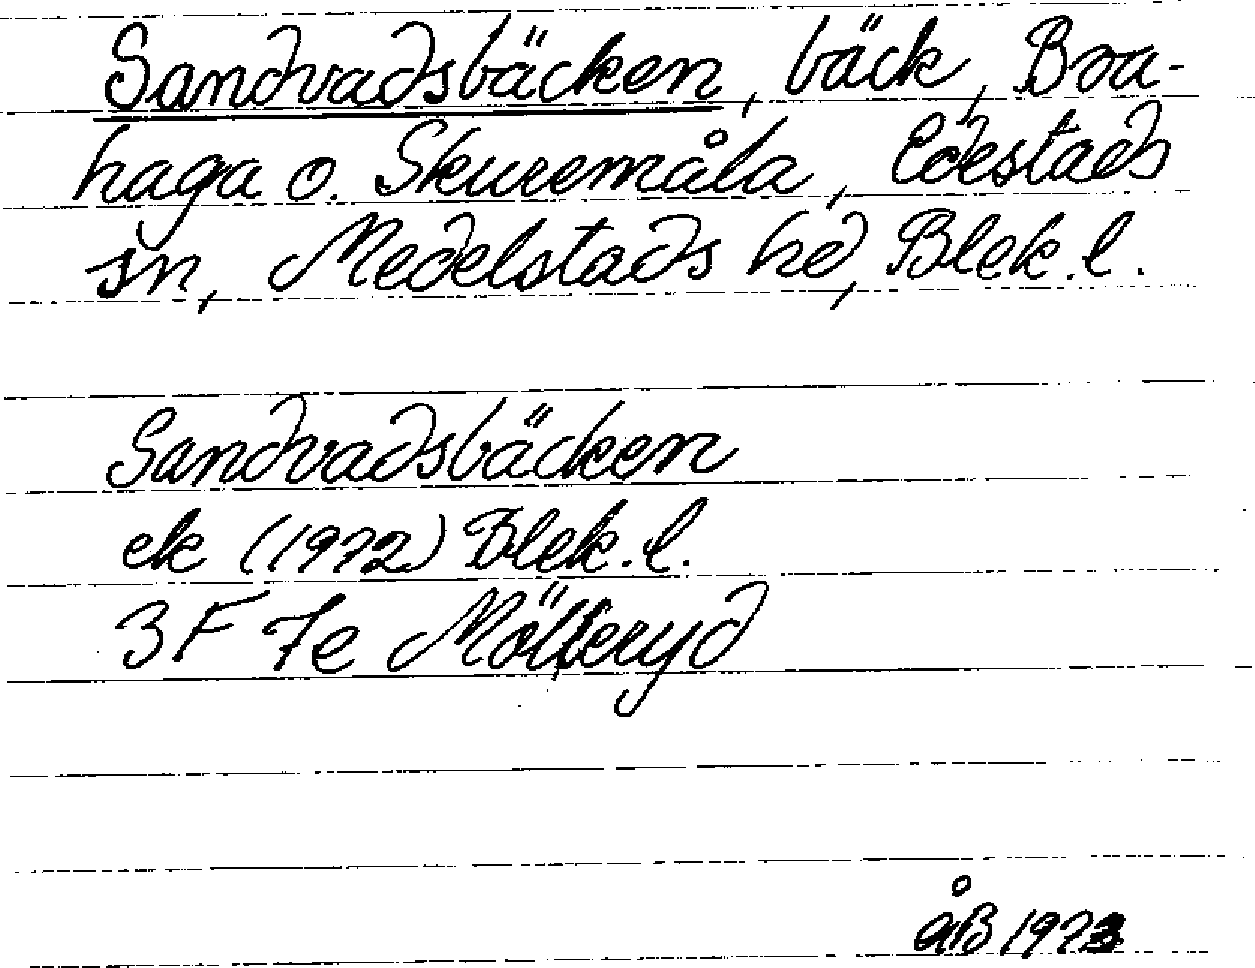 Sandvadsbäcken, bäck, Boa-
haga o. Skuremåla, Edestads
sn, Medelstads hd, Blek. l.
Sandvadsbäcken
ek (1972) Blek. l.
3F 7e Mölleryd
åB 1973